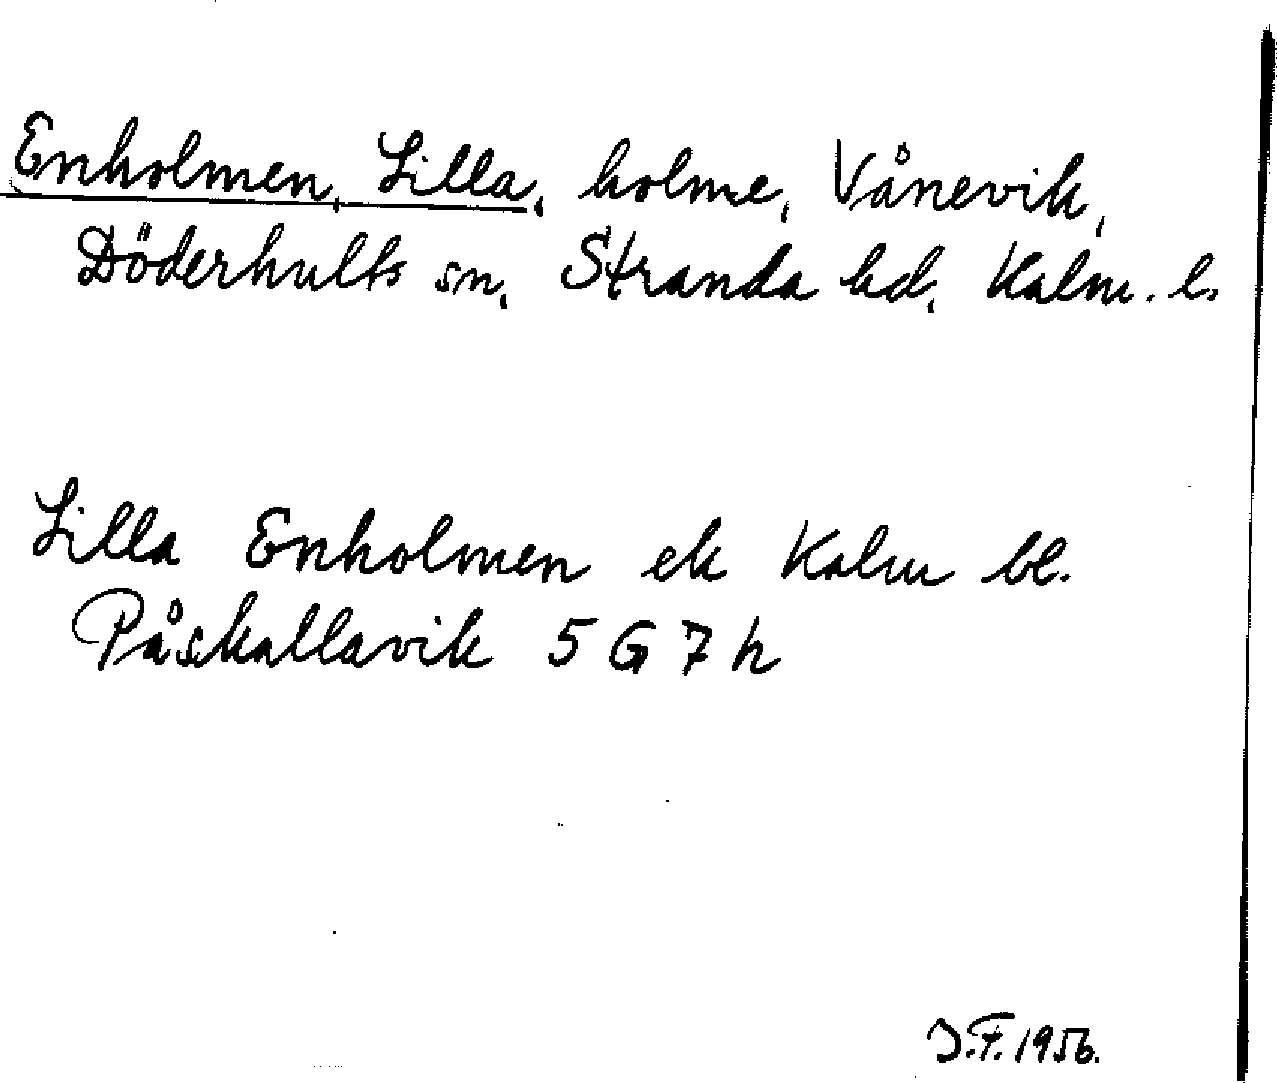 Enholmen, Lilla, holme, Vånevik,
Döderhults sn, Stranda hd, Kalm. l.
Lilla Enholmen ek Kalm bl.
Påskallavik 5 G 7 h
J.F. 1956.